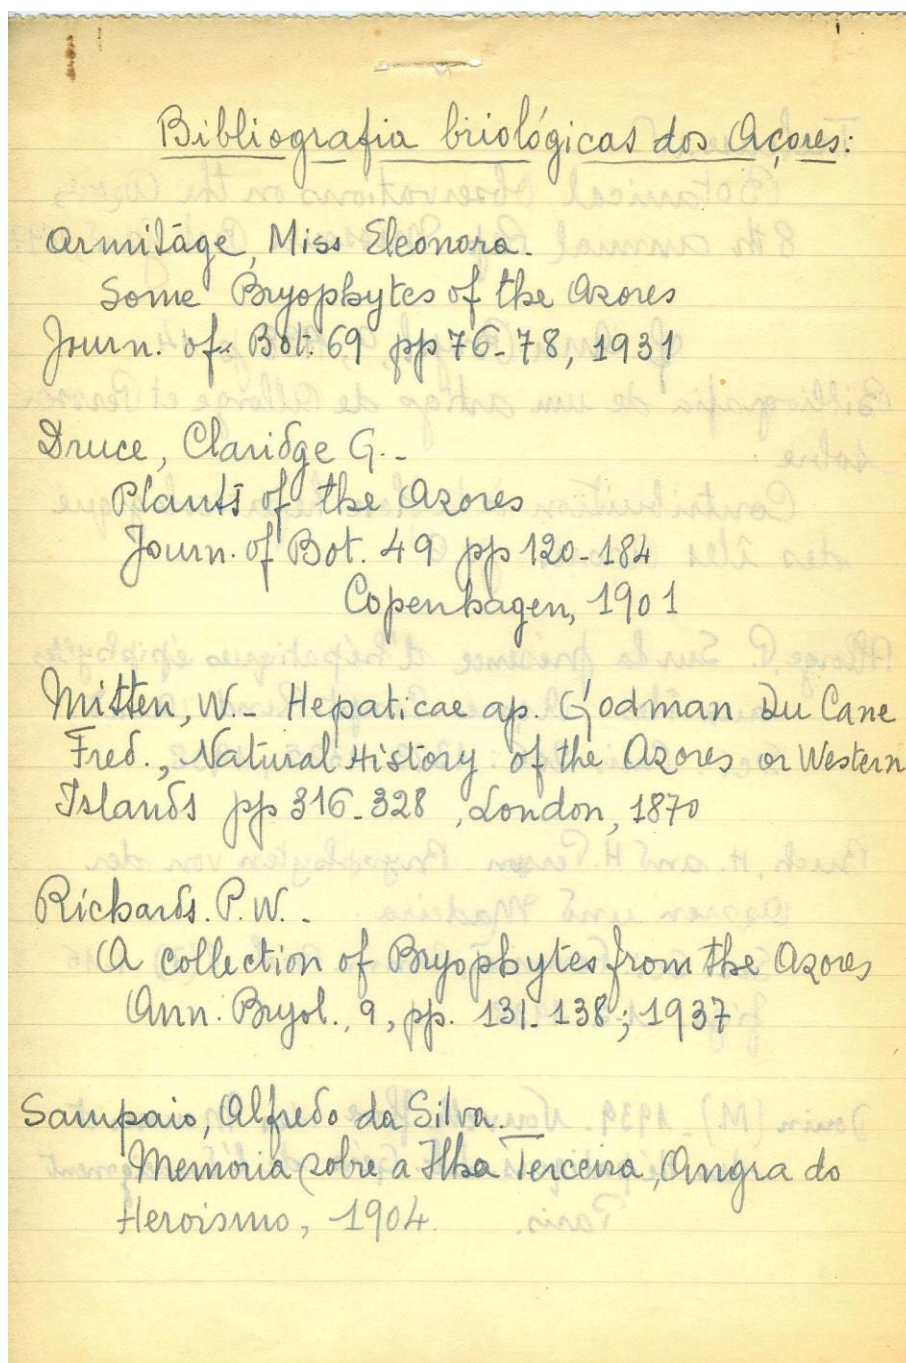 Bibliografia briológicas dos Açores:
Armitage, Miss Eleonora.
Some Bryophytes of the Azores
Journ. of Bot. 69 pp 76-78, 1931
Druce, Claridge G.-
Plants of the Azores
Journ. of Bot. 49 pp 120-184
Copenhagen, 1901
Mitten, W.- Hepaticae ap. Godman Du Cane
Fred., Natural History of the Azores or Western
Islands pp 316-328, London, 1870
Richards. P.W.-
A collection of Bryophytes from the Azores
Ann. Bryol., 9, pp. 131-138; 1937
Sampaio, Alfredo da Silva.
Memoria sobre a Ilha Terceira, Angra do
Heroismo, 1904.